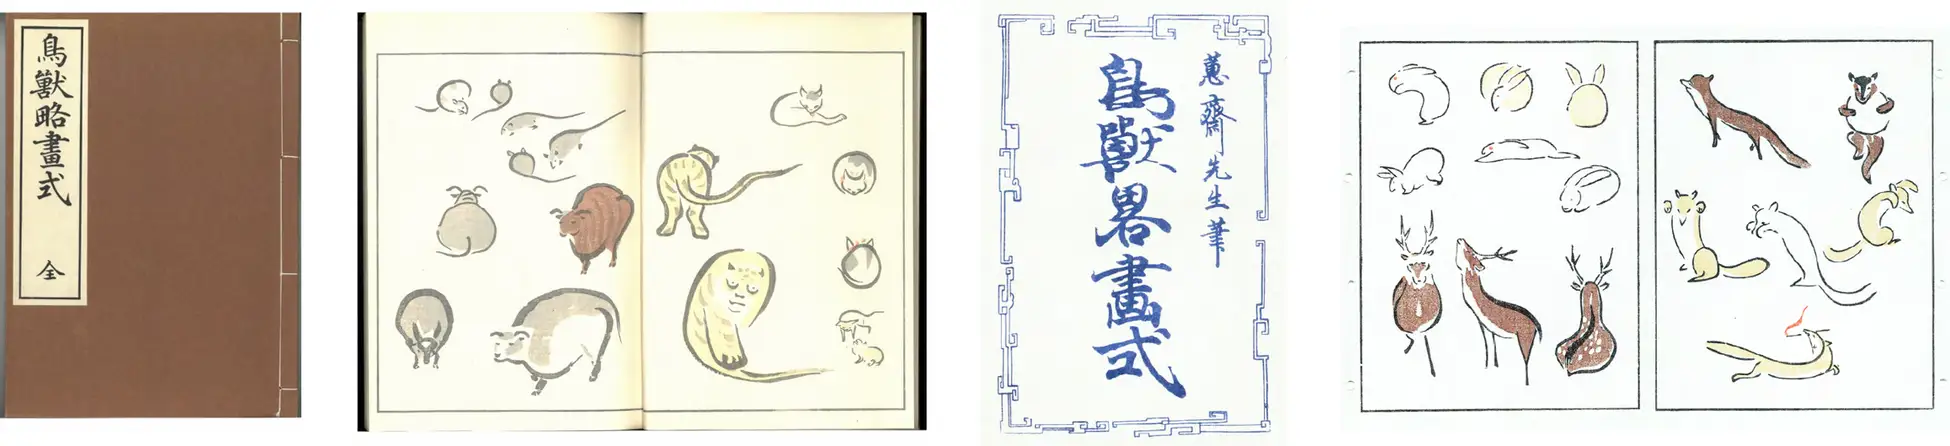 鳥獸略畫式
全
蕙齋先生筆
鳥獸畧畫式